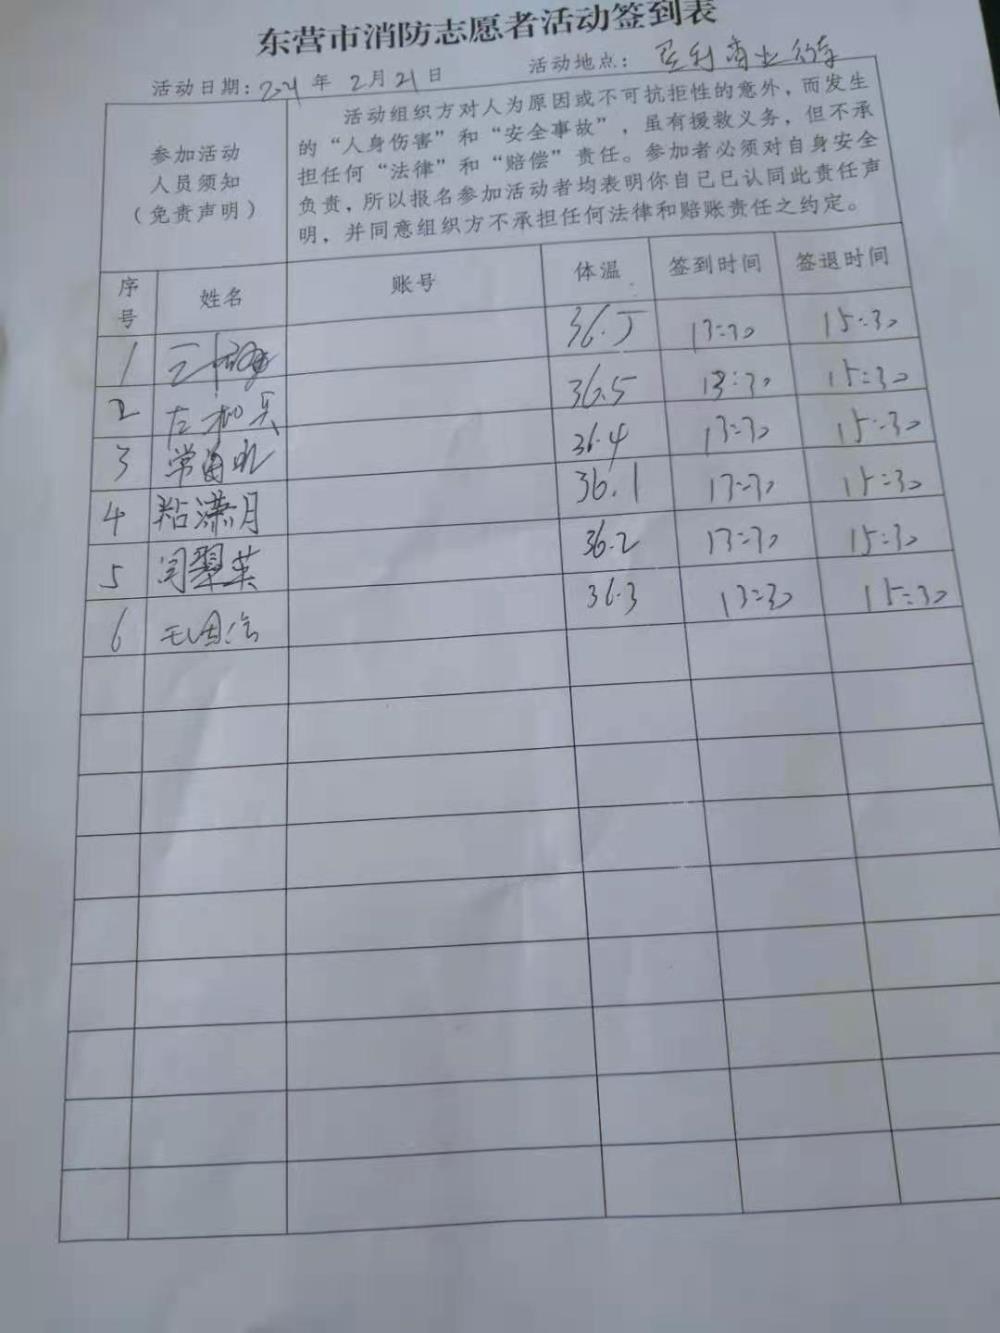 东营市消防志愿者活动签到表
活动日期：2021年2月21日 活动地点：
参加活动
人员须知
（免责声明）
活动组织方对人为原因或不可抗拒性的意外，而发生
的“人身伤害”和“安全事故”，虽有援救义务，但不承
担任何“法律”和“赔偿”责任。参加者必须对自身安全
负责，所以报名参加活动者均表明你自己已认同此责任声
明，并同意组织方不承担任何法律和赔账责任之约定。
序号 姓名 账号 体温 签到时间 签退时间
1 36.5 13:30 15:30
2 36.5 13:30 15:30
3 36.4 13:30 15:30
4 粘潇月 36.1 13:30 15:30
5 闫翠英 36.2 13:30 15:30
6 36.3 13:30 15:30